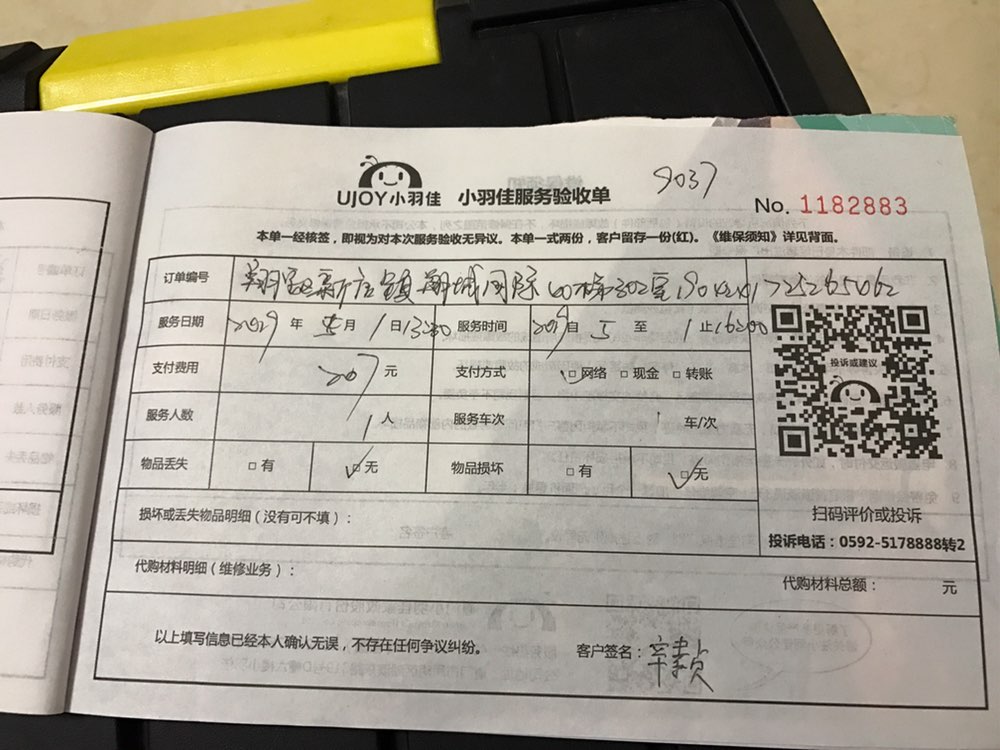 9037
UJOY小羽佳 小羽佳服务验收单
No. 1182883
本单一经核签，即视为对本次服务验收无异议。本单一式两份，客户留存一份(红)。《维保须知》详见背面。
订单编号 翔安新店镇翔城国际60梯302室
服务日期 年 5月1日 服务时间 自5至1止16:00
支付费用 207元 支付方式 网络 □现金 □转账
服务人数 1人 服务车次 1车/次
物品丢失 □有 ☑无 物品损坏 □有 ☑无
投诉或建议
扫码评价或投诉
投诉电话：0592-5178888转2
损坏或丢失物品明细（没有可不填）：
代购材料明细（维修业务）： 代购材料总额： 元
以上填写信息已经本人确认无误，不存在任何争议纠纷。 客户签名：